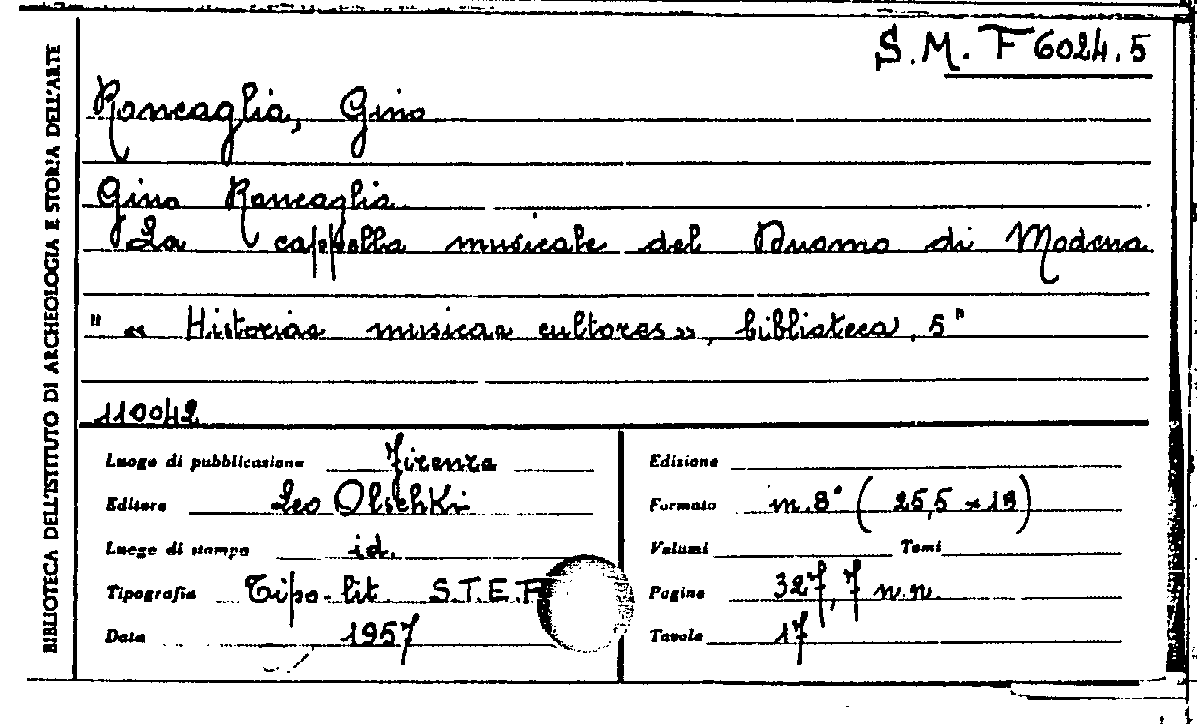 S.M. F 6024.5
BIBLIOTECA DELL'ISTITUTO DI ARCHEOLOGIA E STORIA DELL'ARTE
Roncaglia, Gino
Gino Roncaglia
La cappella musicale del Duomo di Modena
" « Historiae musicae cultores», biblioteca, 5"
110042
Luogo di pubblicazione Firenze
Editore Leo Olschki
Luogo di stampa id.
Tipografia Tipo-lit. S.T.E.F
Data 1957
Edizione
Formato in.8° ( 25,5 × 18 )
Volumi Tomi
Pagine 327, 7 n.n.
Tavole 17